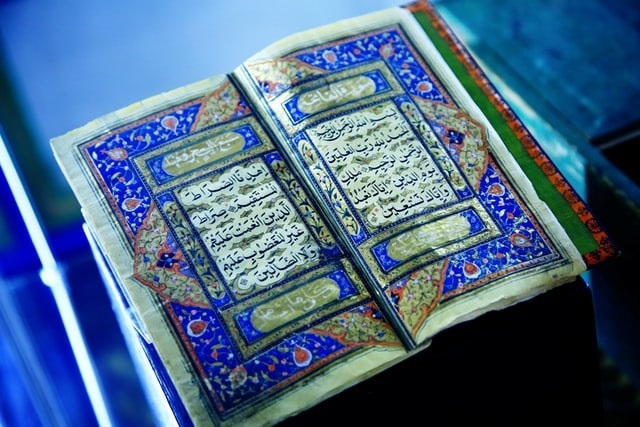 سورة الفاتحة
بسم الله الرحمن الرحيم
الحمد لله رب العلمين
الرحمن الرحيم ملك
يوم الدين اياك نعبد
واياك نستعين
اهدنا الصراط
المستقيم صراط
الذين انعمت عليهم
غير المغضوب عليهم
ولا الضالين